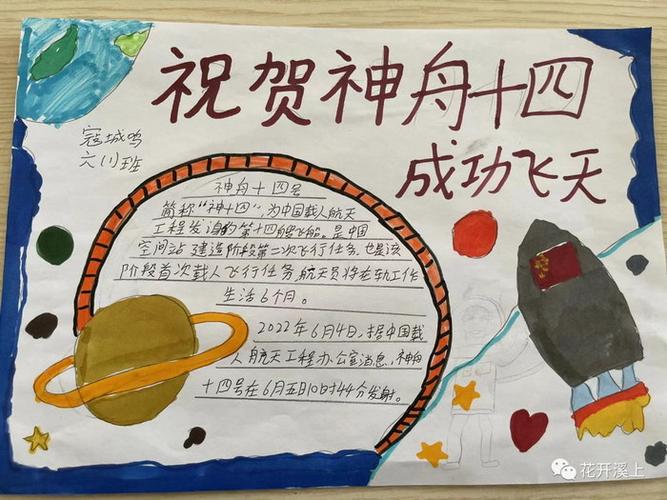 祝贺神舟十四
成功飞天
寇城鸣
六(1)班
神舟十四号
简称“神十四”,为中国载人航天
工程发射的第十四艘飞船。是中国
空间站建造阶段第二次飞行任务,也是该
阶段首次载人飞行任务,航天员将在轨工作
生活6个月。
2022年6月4日,据中国载
人航天工程办公室消息,神舟
十四号在6月五日10时44分发射。
花开溪上